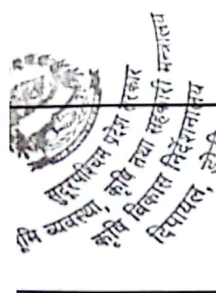 सुदूरपश्चिम प्रदेश सरकार
भूमि व्यवस्था, कृषि तथा सहकारी मन्त्रालय
कृषि विकास निर्देशनालय
दिपायल,